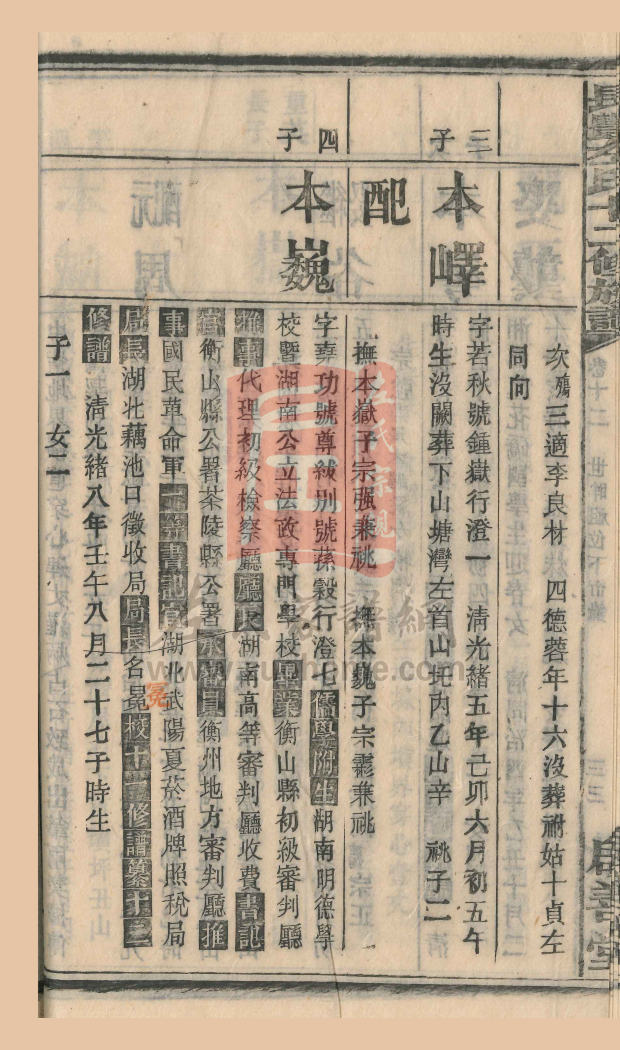 次殤 三適李良材 四德蓉年十六沒葬祔姑十貞左
同向
三子
本嶧
字若秋號鍾嶽行澄一 清光緒五年己卯六月初五午
時生沒闕葬下山塘灣左首山圫內乙山辛 祧子二
撫本嶽子宗强兼祧 撫本巍子宗 兼祧
配
四子
本巍
字堯功號尊紱別號蓀穀行澄七儒學附生湖南明德學
校暨湖南公立法政專門學校畢業衡山縣初級審判廳
推事代理初級檢察廳廳長湖南高等審判廳收費書記
官衡山縣公署茶陵縣公署承審員衡州地方審判廳推
事國民革命軍 書記官湖北武陽夏菸酒牌照稅局
局長湖北藕池口徵收局局長名冕 十二修譜纂十三
修譜 清光緒八年壬午八月二十七子時生
子一 女二
卷十二
三三
啟善堂
冕
www.zuphome.com